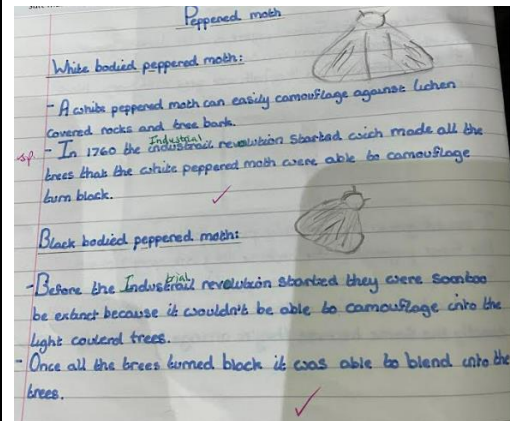 Peppered moth
White bodied peppered moth:
- A white peppered moth can easily camouflage against lichen
covered rocks and tree bark.
Industrial
sp. - In 1760 the industrail revolution started wich made all the
trees that the white peppered moth were able to camouflage
turn black.
Black bodied peppered moth:
- Before the Industrial revolution started they were
be extinct because it wouldn't be able to camouflage into the
light trees.
- Once all the trees turned black it was able to blend into the
trees.